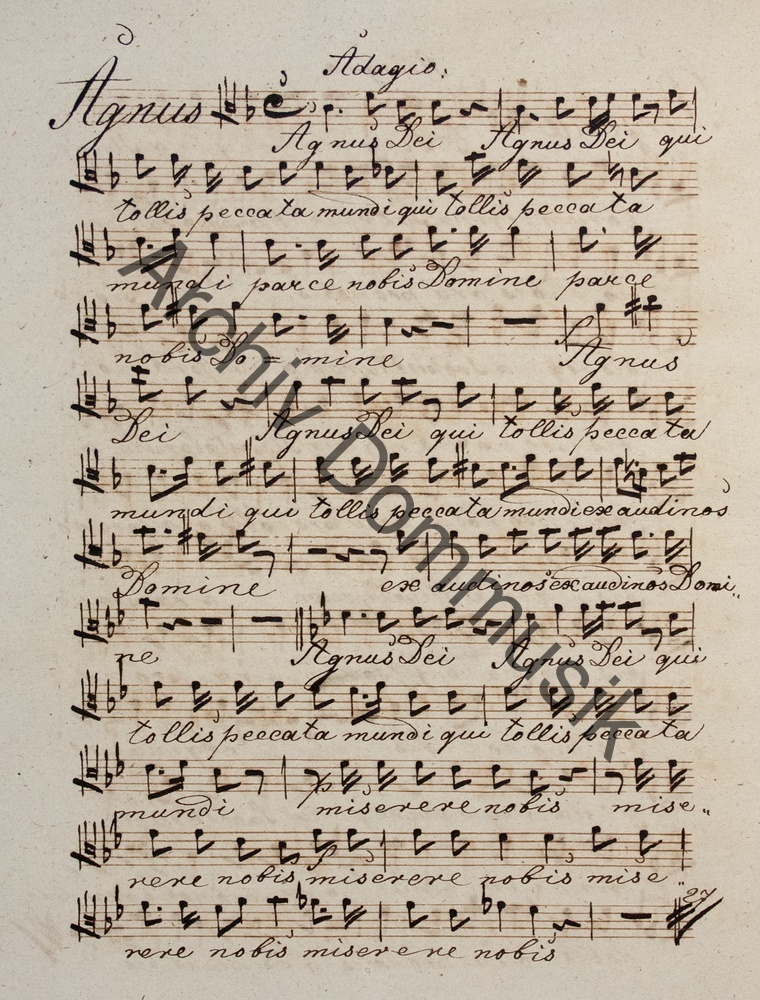 Adagio:
Agnus
Agnus Dei Agnus Dei qui
tollis peccata mundi qui tollis peccata
mundi parce nobis Domine parce
nobis Do = mine Agnus
Dei Agnus Dei qui tollis peccata
mundi qui tollis peccata mundi exaudi nos
Domine exaudi nos exaudi nos Domi„
ne Agnus Dei Agnus Dei qui
tollis peccata mundi qui tollis peccata
mundi miserere nobis mise„
rere nobis miserere nobis mise„
27
rere nobis miserere nobis
Archiv Dommusik